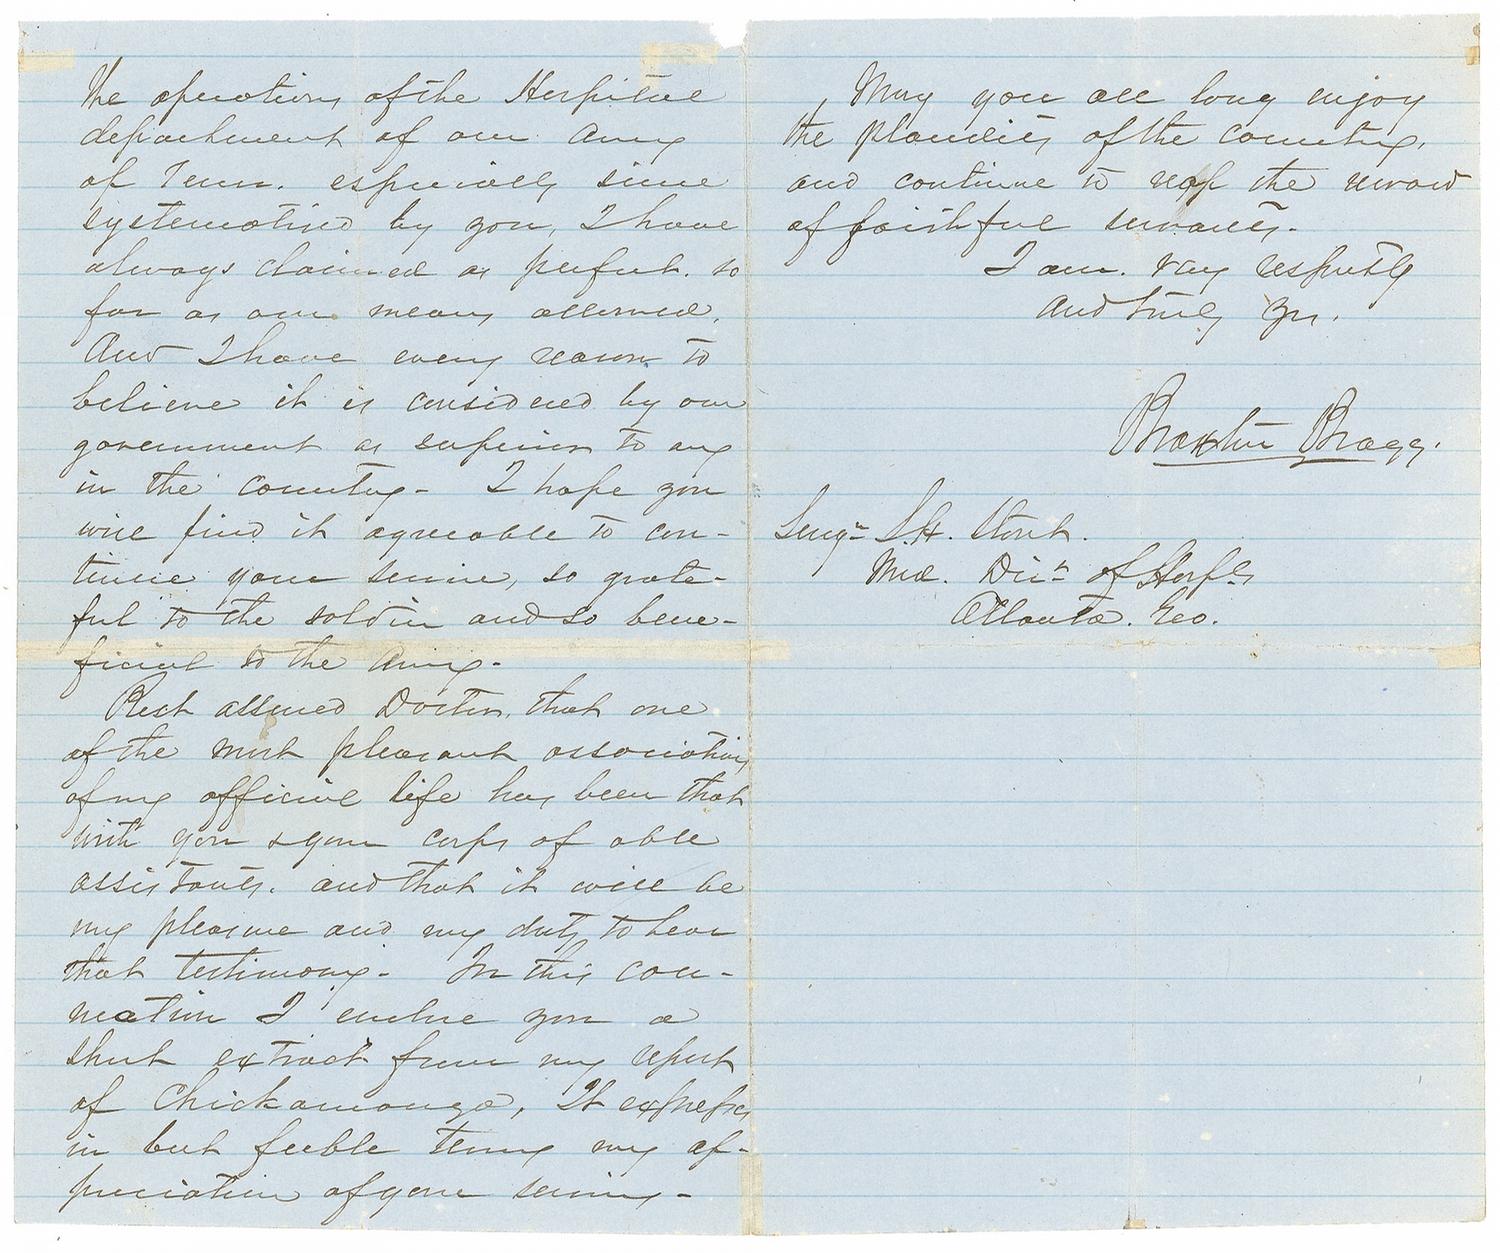 the operations of the Hospital
department of our Army
of Tenn. especially since
systematised by you, I have
always claimed as perfect. so
far as our means allowed.
And I have every reason to
believe it is considered by our
government as superior to any
in the country - I hope you
will find it agreeable to con-
tinue your service, so grate-
ful to the soldier and so bene-
ficial to the Army -
Rest assured Doctor, that one
of the most pleasant associations
of my official life has been that
with you & your corps of able
assistants. and that it will be
my pleasure and my duty to bear
that testimony - In this con-
nection I enclose you a
short extract from my report
of Chickamauga, It expresses
in but feeble terms my ap-
preciation of your services -
May you all long enjoy
the plaudits of the country,
and continue to reap the reward
of faithful servants -
I am. very respectfly
and truly yrs.
Braxton Bragg.
Surgn S.H. Stout.
Med. Dirr of Hospls
Atlanta. Geo.